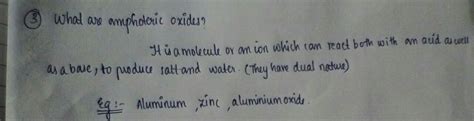 ③ What are amphoteric oxides?
It is a molecule or an ion which can react both with an acid as well
as a base, to produce salt and water. (They have dual nature)
Eg :- Aluminum, zinc, aluminium oxide.